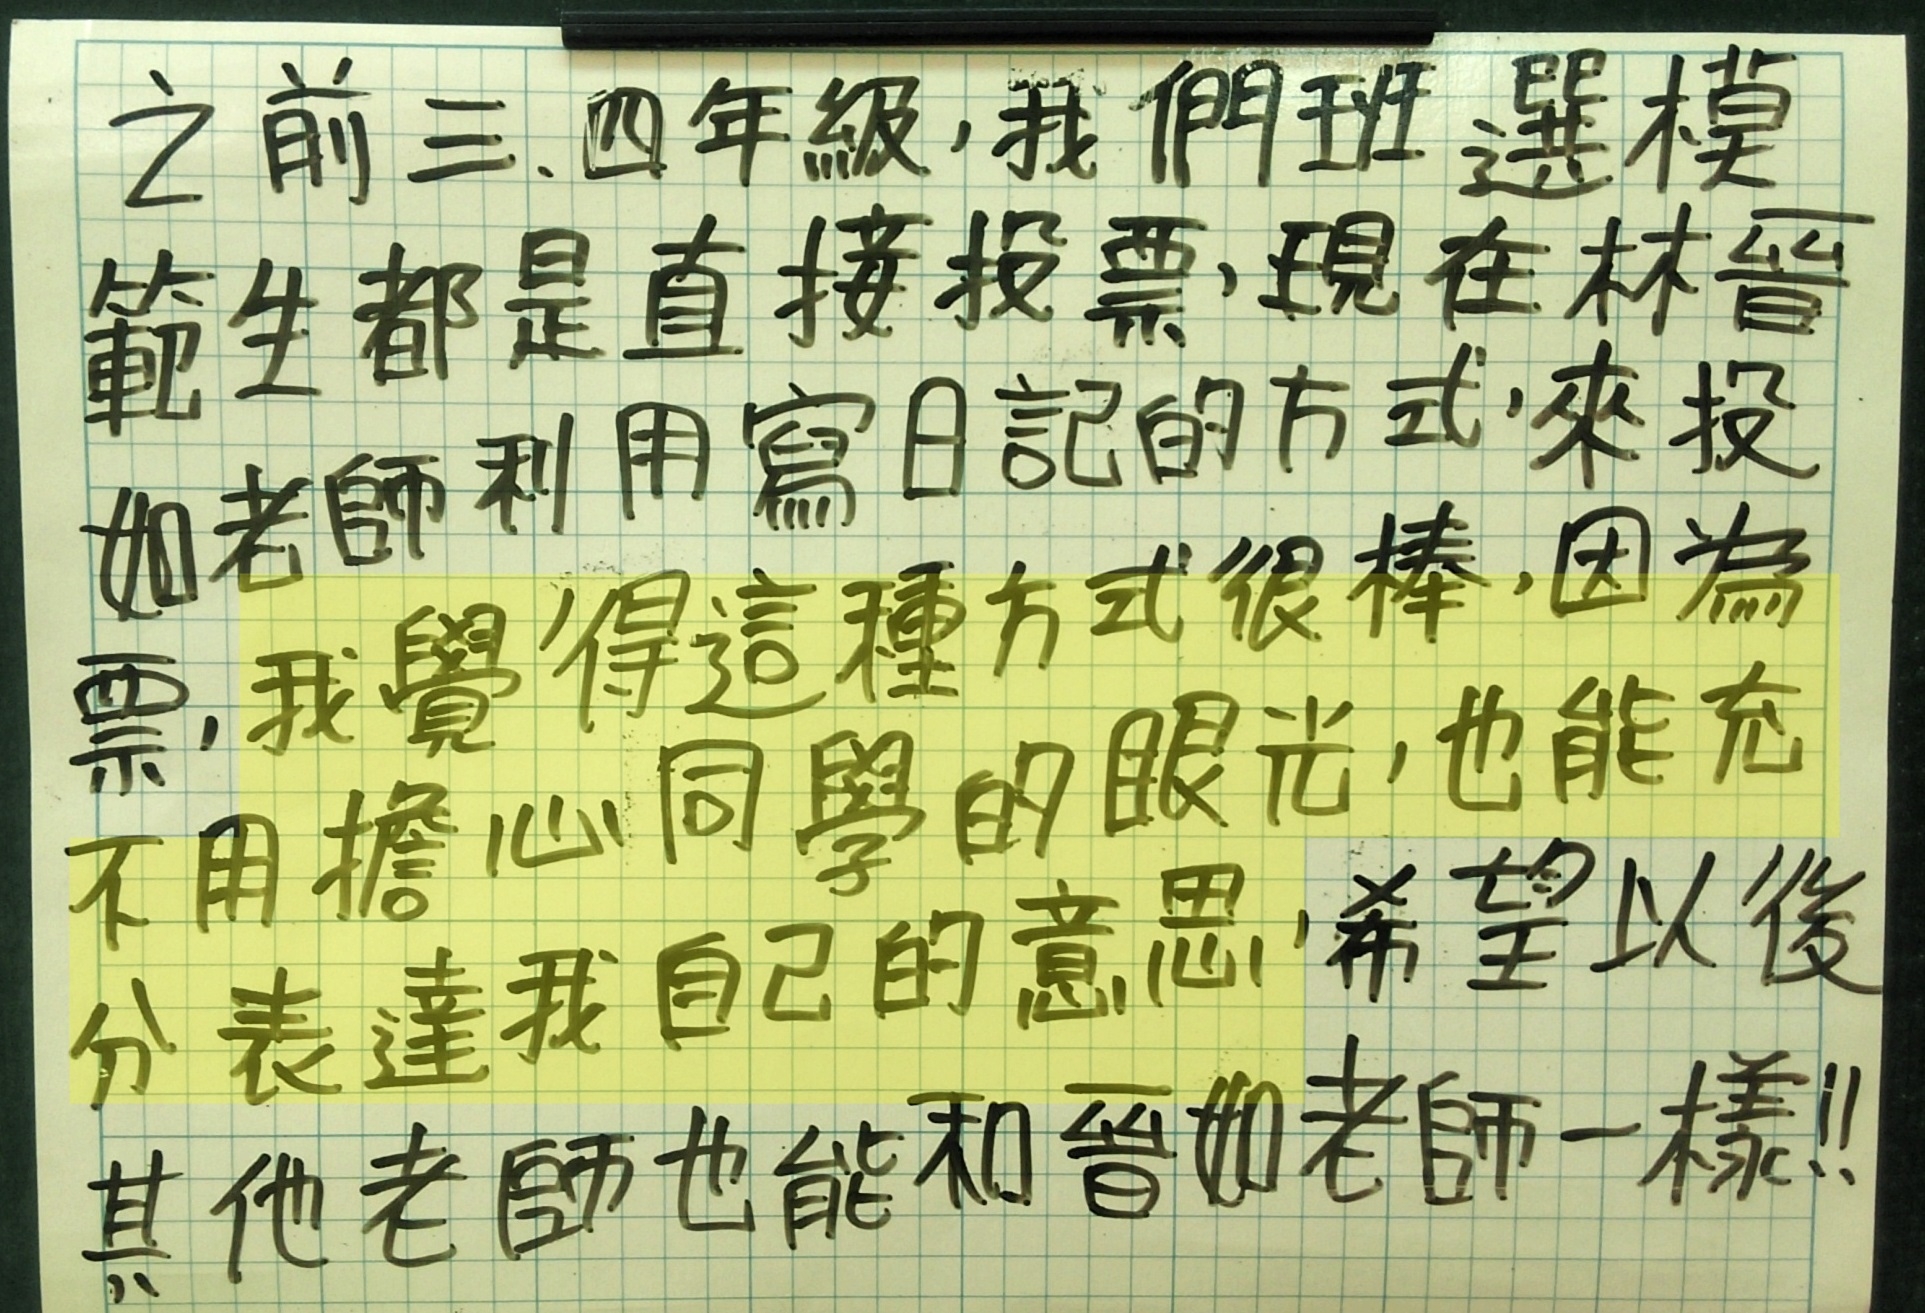 之前三、四年級，我們班選模
範生都是直接投票，現在林晉
如老師利用寫日記的方式，來投
票，我覺得這種方式很棒，因為
不用擔心同學的眼光，也能充
分表達我自己的意思，希望以後
其他老師也能和晉如老師一樣!!